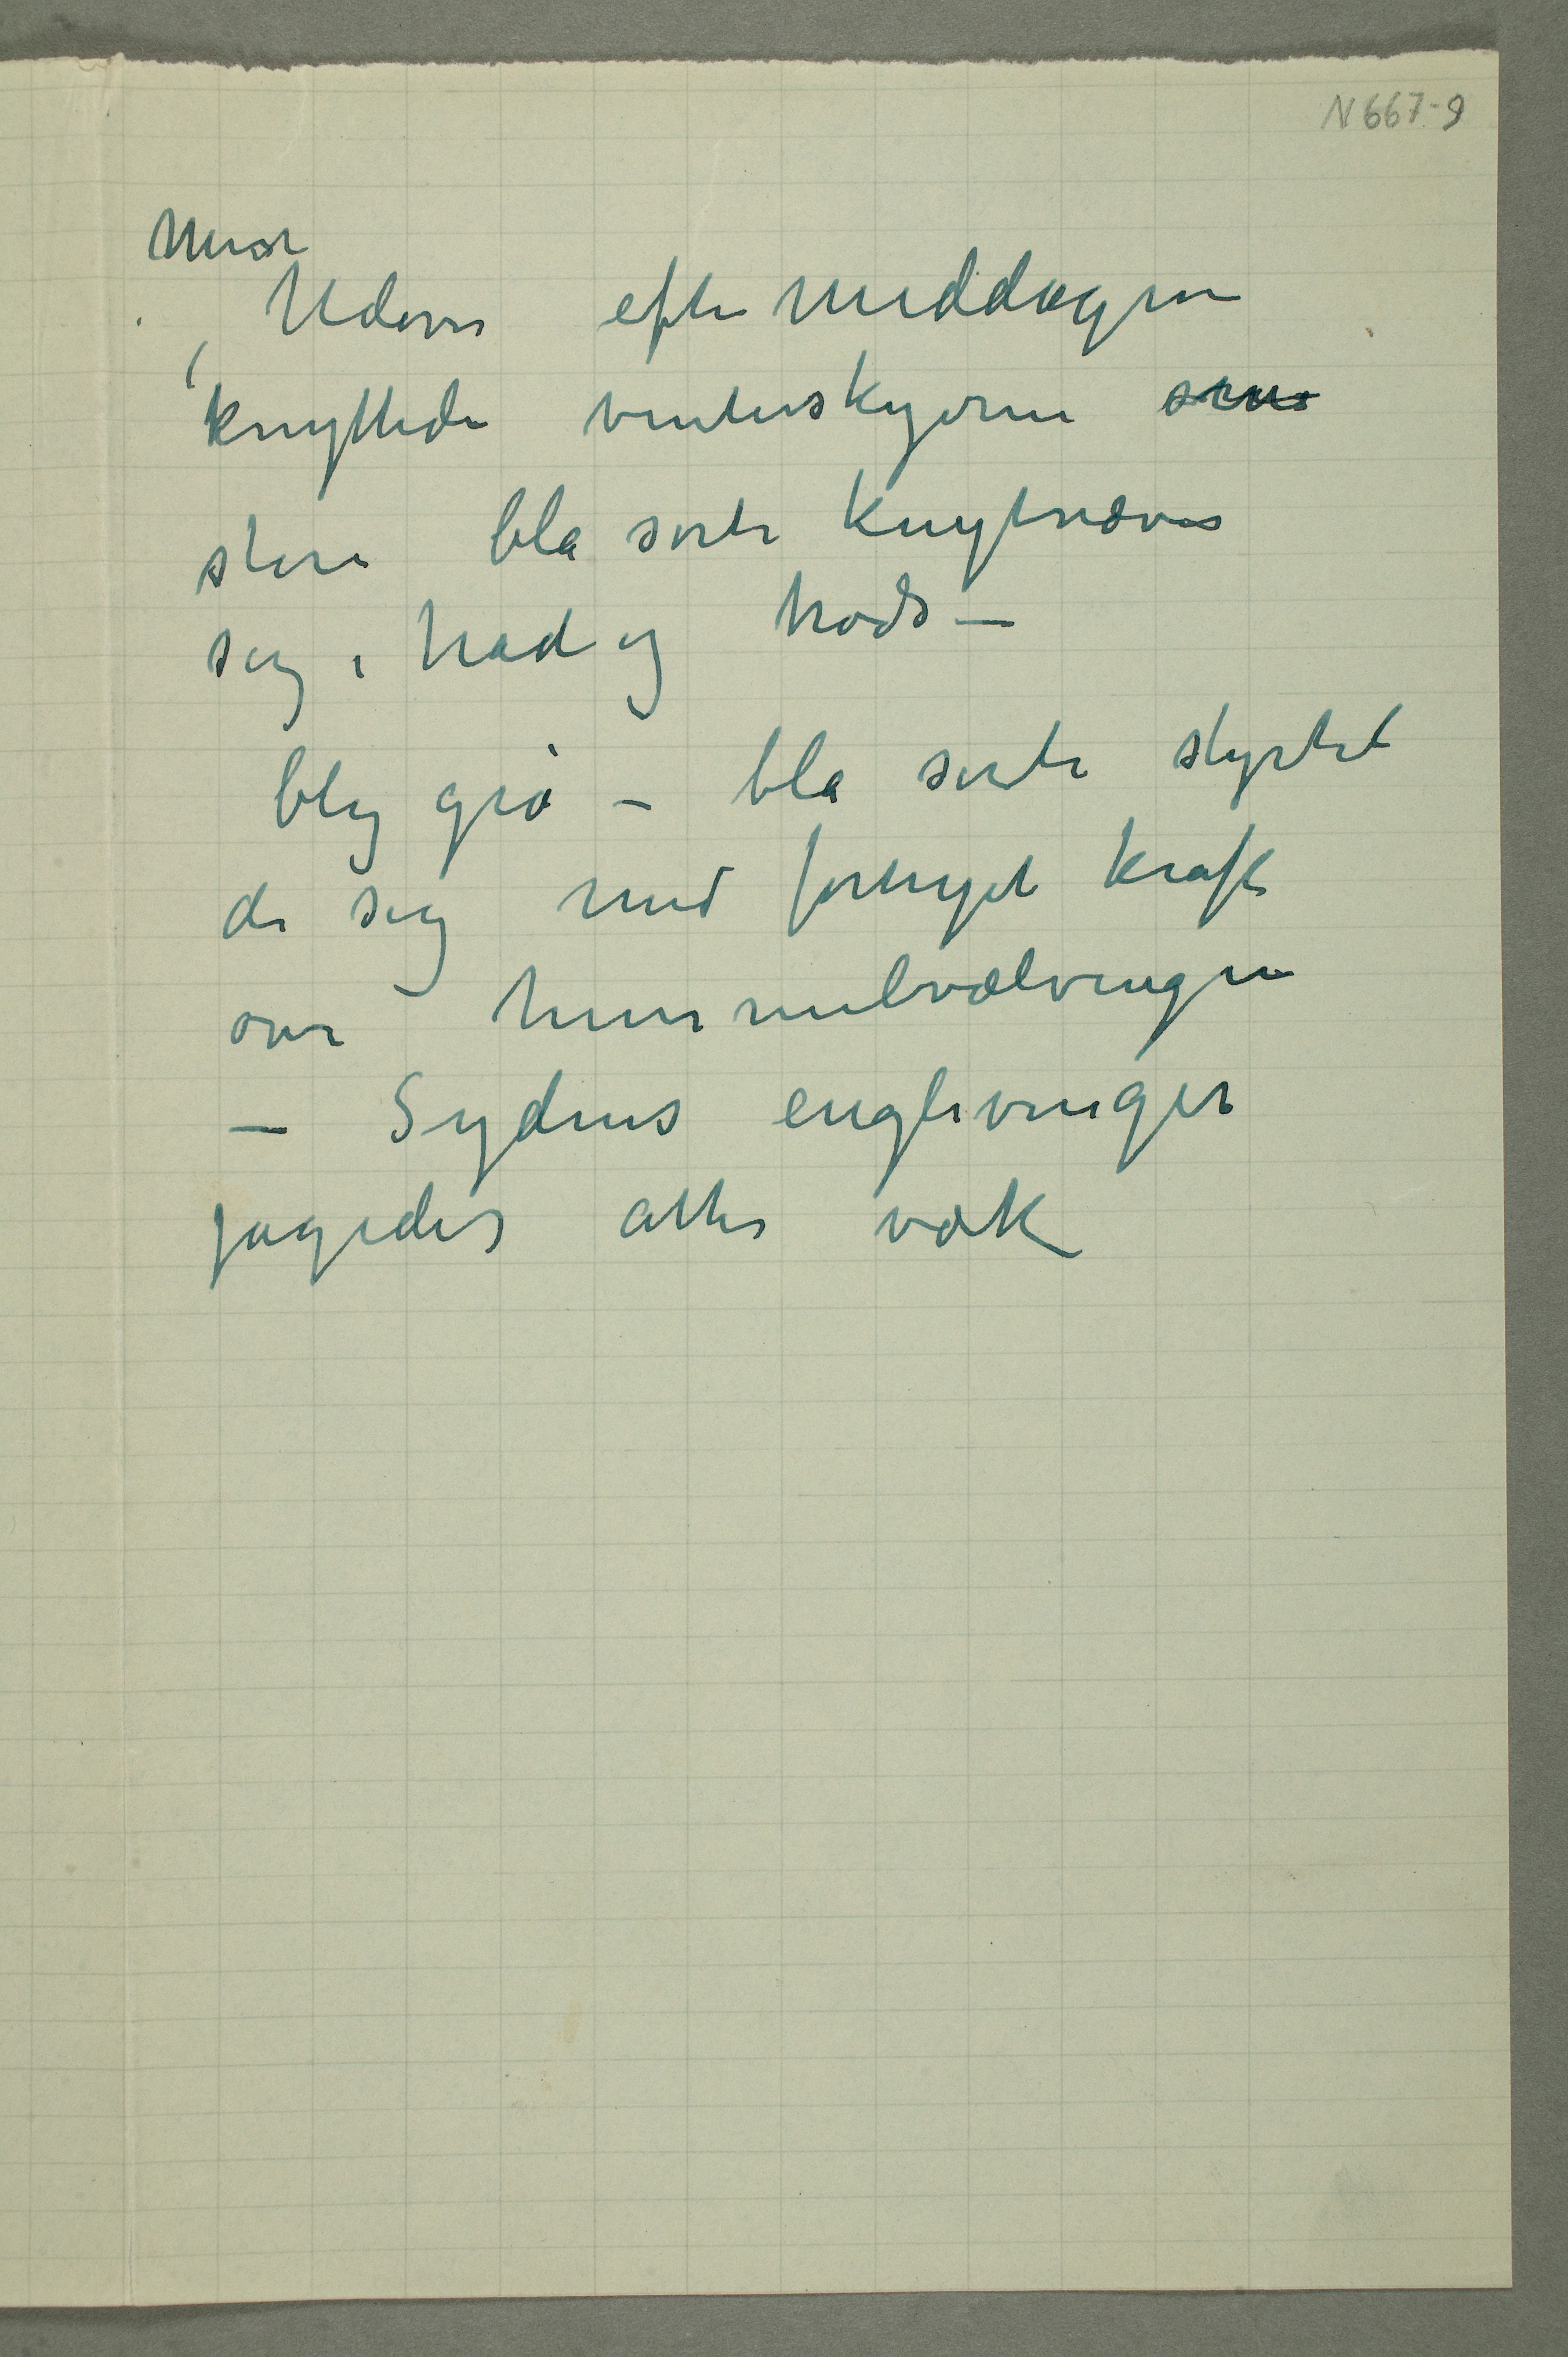 N 667-9
Men
Udover eftermiddagen
knyttede vinterskyerne som
store blå sorte knytnæver
sig i had og trods —
bly grå – blå sorte styrtet
de sig med fornyet kraft
over himmelvælvingen
— Sydens englevinger
jagedes atter væk